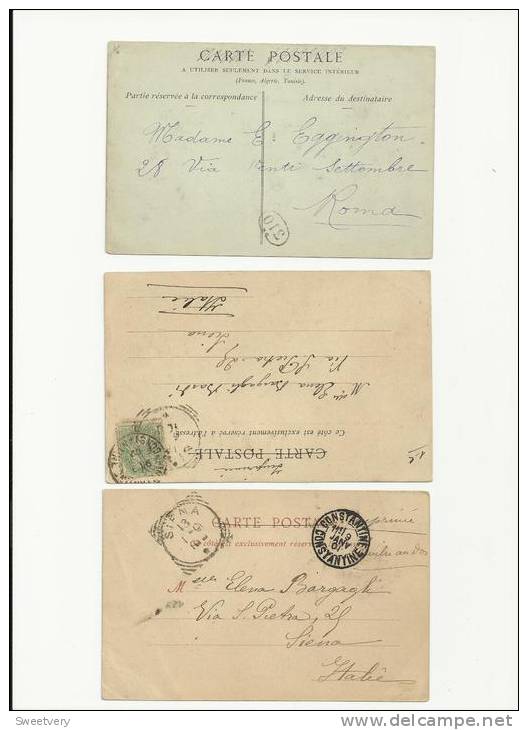 CARTE POSTALE
A UTILISER SEULEMENT DANS LE SERVICE INTÉRIEUR
(France, Algérie, Tunisie).
Partie réservée à la correspondance
Adresse du destinataire
Madame E. Eggington
28 Via Venti Settembre
Roma
310
CARTE POSTALE
Ce côté est exclusivement réservé à l'adresse
Imprimé
Mlle Elena Bargagli
Via S. Pietro 25
Siena
Italie
CARTE POSTALE
Ce côté est exclusivement réservé
Imprimé
SIENA
CONSTANTINE
CONSTANTINE
JANV
Mlle Elena Bargagli
Via S. Pietro, 25
Siena
Italie
Sweetvery
www.delcampe.net